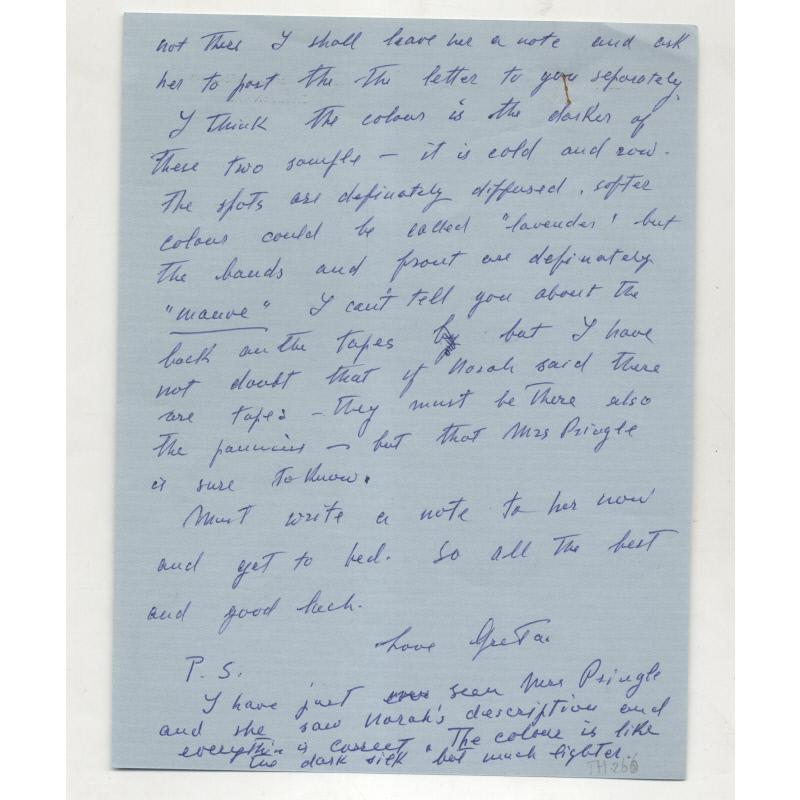 not there I shall leave her a note and ask
her to post the the letter to you separately.
I think the colour is the darker of
these two sample – it is cold and raw.
The spots are definately diffused, softer
colour could be called "lavender" but
the bands and front are definately
"mauve" I can't tell you about the
back on the tapes but I have
not doubt that if Norah said there
are tapes – they must be there also
the panniers – but that Mrs Pringle
is sure to know.
Must write a note to her now
and get to bed. So all the best
and good luck.
Love Greta
P. S.
I have just seen Mrs Pringle
and she saw Norah's description and
everything is correct. The colour is like
the dark silk but much lighter.